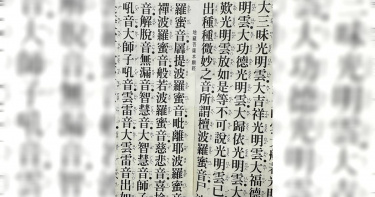 大三昧光明雲大吉祥光明雲大福德
明雲大功德光明雲大歸依光明雲大
歎光明雲放如是等不可說光明雲已
出種種微妙之音所謂檀波羅蜜音尸
波羅蜜音羼提波羅蜜音毗離耶波羅蜜音
禪波羅蜜音般若波羅蜜音慈悲音喜捨
音解脫音無漏音智慧音大智慧音師子
吼音大師子吼音雲雷音大雲雷音出如